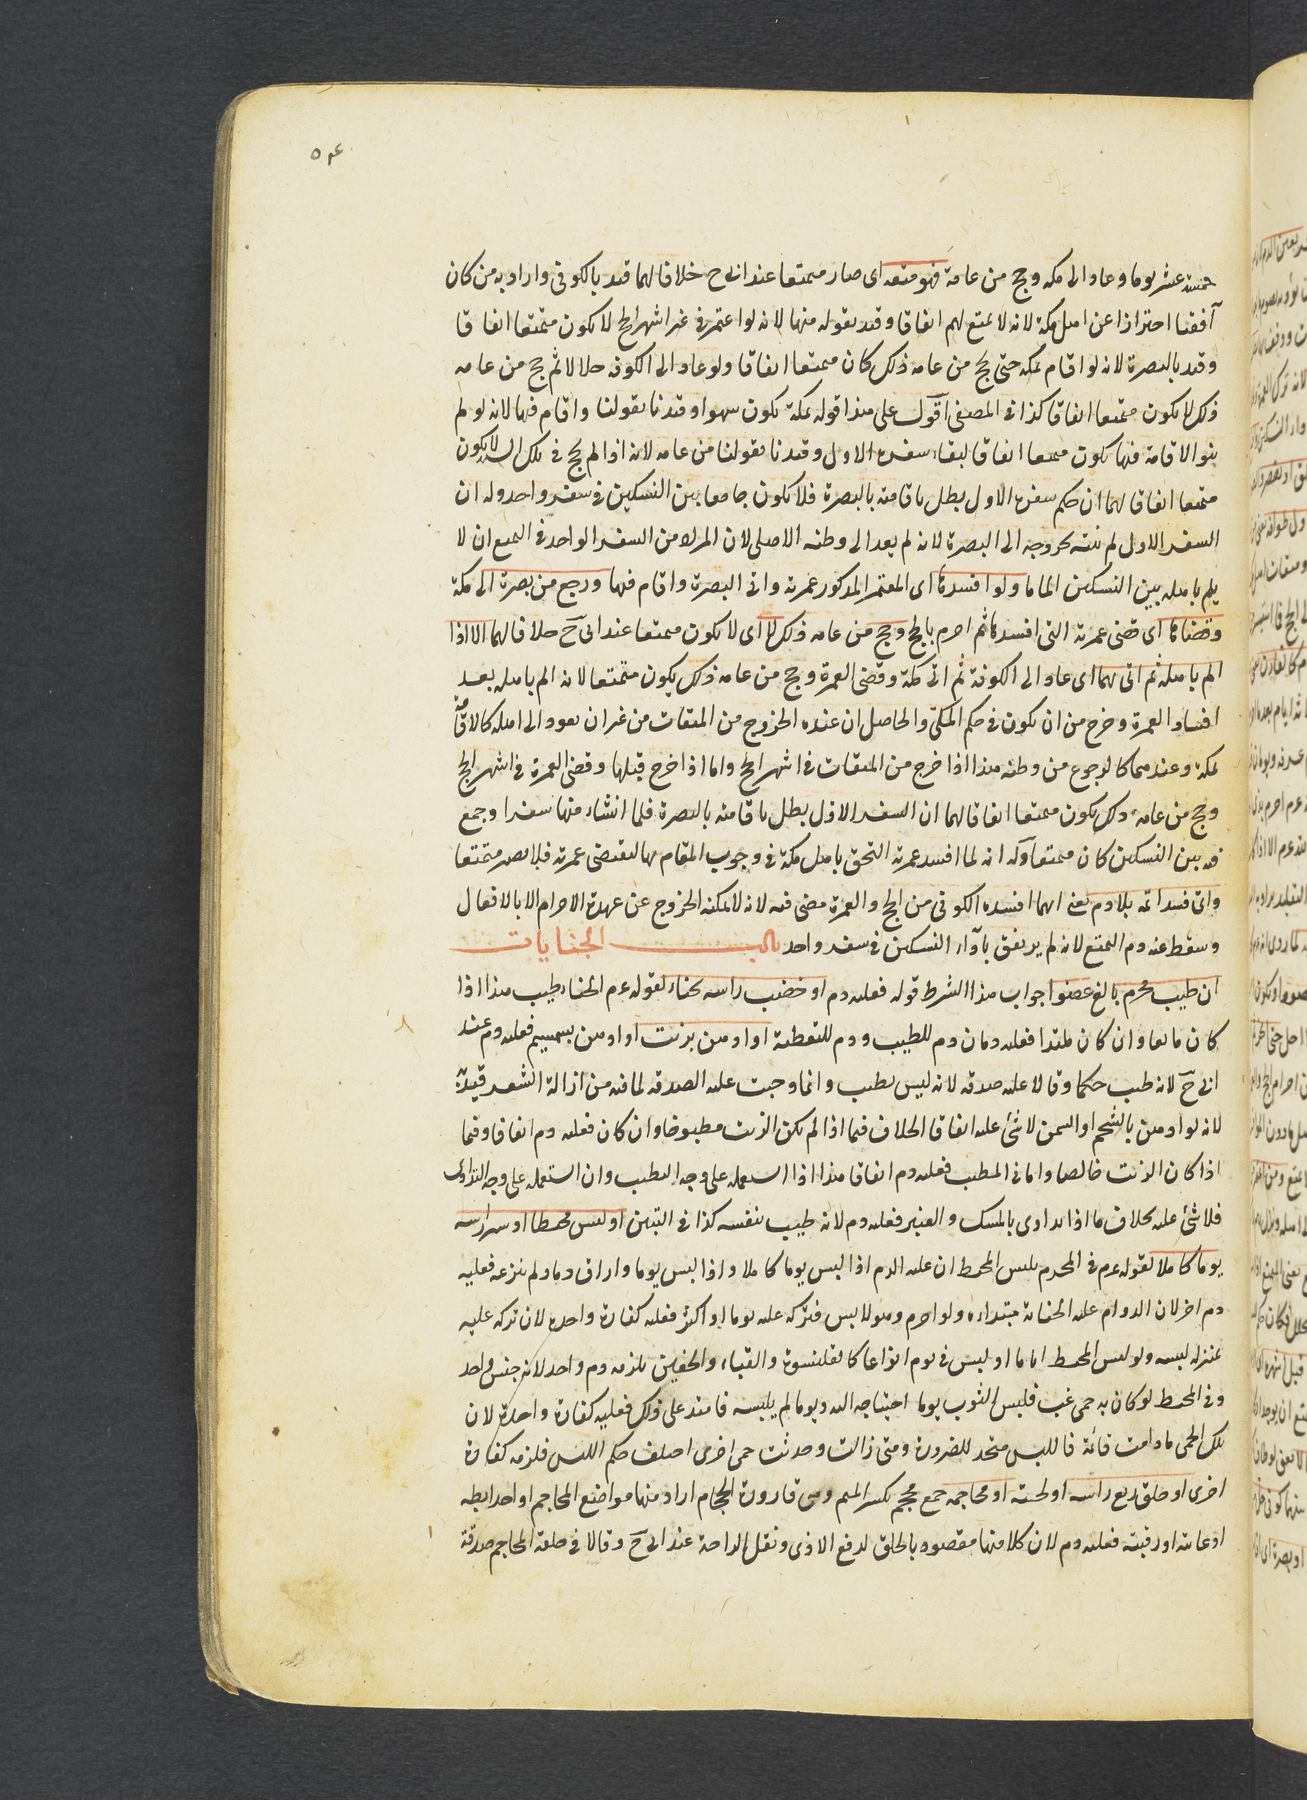 خمسة عشر يوما وعاد الى مكه وحج من عامة فهو متعه اى صار متمتعا عند ابى ح خلافا لهما قيد بالكوفى واراد به من كان
آفقيا احترازا عن اهل مكة لانه لا تمتع لهم اتفاقا وقيد بقوله منها لانه لو اعتمر فى غير اشهر الحج لا يكون متمتعا اتفاقا
وقيد بالبصرة لانه لو اقام بمكه حتى حج من عامه ذلك كان متمتعا اتفاقا ولو عاد الى الكوفه حلالا ثم حج من عامه
ذلك لا يكون متمتعا اتفاقا كذا فى المصفى اقول على هذا قوله بمكة يكون سهوا وقيدنا بقولنا واقام فيها لانه لو لم
ينو الاقامة فيها يكون متمتعا اتفاقا لبقاء سفره الاول وقيدنا بقولنا من عامه لانه اذا لم يحج فى تلك السنه لا يكون
متمتعا اتفاقا لهما ان حكم سفره الاول بطل باقامته بالبصرة فلا يكون جامعا بين النسكين فى سفر واحد وله ان
السفر الاول لم ينته بخروجه الى البصرة لانه لم يعد الى وطنه الاصلى لان المراد من السفر الواحد فى التمتع ان لا
يلم باهله بين النسكين الماما ولو افسدها اى المعتمر المذكور عمرته واتى البصرة واقام فيها ورجع من بصرة الى مكة
وقضاها اى قضى عمرته التى افسدها ثم احرم بالحج وحج من عامه ذلك لا اى لا يكون متمتعا عند ابى ح خلافا لهما الا اذا
الم باهله ثم اتى بهما اى عاد الى الكوفة ثم اتى مكة وقضى العمرة وحج من عامه ذلك يكون متمتعا لانه الم باهله بعد
افساد العمرة وخرج من ان يكون فى حكم المكى والحاصل ان عنده الخروج من الميقات من غير ان يعود الى اهله كالاقامة
بمكة وعندهما كالرجوع من وطنه هذا اذا خرج من الميقات فى اشهر الحج واما اذا خرج قبلها وقضى العمرة فى اشهر الحج
وحج من عامه ذلك يكون متمتعا اتفاقا لهما ان السفر الاول بطل باقامته بالبصرة فلما انشاء منها سفرا وجمع
فيه بين النسكين كان متمتعا وله انه لما افسد عمرته التحق باهل مكة فى وجوب المقام بها ليقضى عمرته فلا يصير متمتعا
واى فسد اتمه بلا دم يعنى ايهما افسده الكوفى من الحج والعمرة مضى فيه لانه لا يمكنه الخروج عن عهدة الاحرام الا بالافعال
وسقط عنه دم التمتع لانه لم يرتفق باداء النسكين فى سفر واحد باب الجنايات
ان طيب محرم بالغ عضوا جواب هذا الشرط قوله فعليه دم او خضب راسه بحناء لقوله عم الحناء طيب هذا اذا
كان مايعا وان كان ملبدا فعليه دمان دم للطيب ودم للتغطية او ادهن بزيت او ادهن بسمسم فعليه دم عند
ابى ح لانه طيب حكما وقالا عليه صدقه لانه ليس بطيب وانما وجبت عليه الصدقه لما فيه من ازالة الشعر قيد به
لانه لو ادهن بالشحم او السمن لا شئ عليه اتفاقا الخلاف فيما اذا لم يكن الزيت مطبوخا وان كان فعليه دم اتفاقا وفيما
اذا كان الزيت خالصا واما فى المطيب فعليه دم اتفاقا هذا اذا استعمله على وجه التطيب وان استعمله على وجه التداوى
فلا شئ عليه بخلاف ما اذا تداوى بالمسك والعنبر فعليه دم لانه طيب بنفسه كذا فى التبين او لبس مخيطا او ستر راسه
يوما كاملا لقوله عم فى المحرم يلبس المخيط ان عليه الدم اذا لبس يوما كاملا واذا لبس يوما واراق دما ولم ينزعه فعليه
دم اخر لان الدوام على الجناية مبتداءه ولو احرم وهو لابس فتركه عليه يوما او اكثر فعليه كفارة واحدة لان تركه عليه
بمنزلة لبسه ولو لبس المخيط اياما او لبس فى يوم انواعا كالقلنسوة والقباء والخفين يلزمه دم واحد لانه جنس واحد
وفى المحيط لو كان به حمى غب فلبس الثوب يوما احتياجه اليه ويوما لم يلبسه فامتد على ذلك فعليه كفارة واحدة لان
تلك الحمى ما دامت قائمة فاللبس متحد للضرورة ومتى زالت وحدثت حمى اخرى اختلف حكم اللبس فلزمه كفارة
اخرى او حلق ربع راسه او لحيته او محاجمه جمع محجم بكسر الميم وهى قارورة الحجام اراد منها مواضع المحاجم او احد ابطيه
او عانته او رقبته فعليه دم لان كلا منها مقصود بالحلق لدفع الاذى ونيل الراحة عند ابى ح وقالا فى حلقه المحاجم صدقة